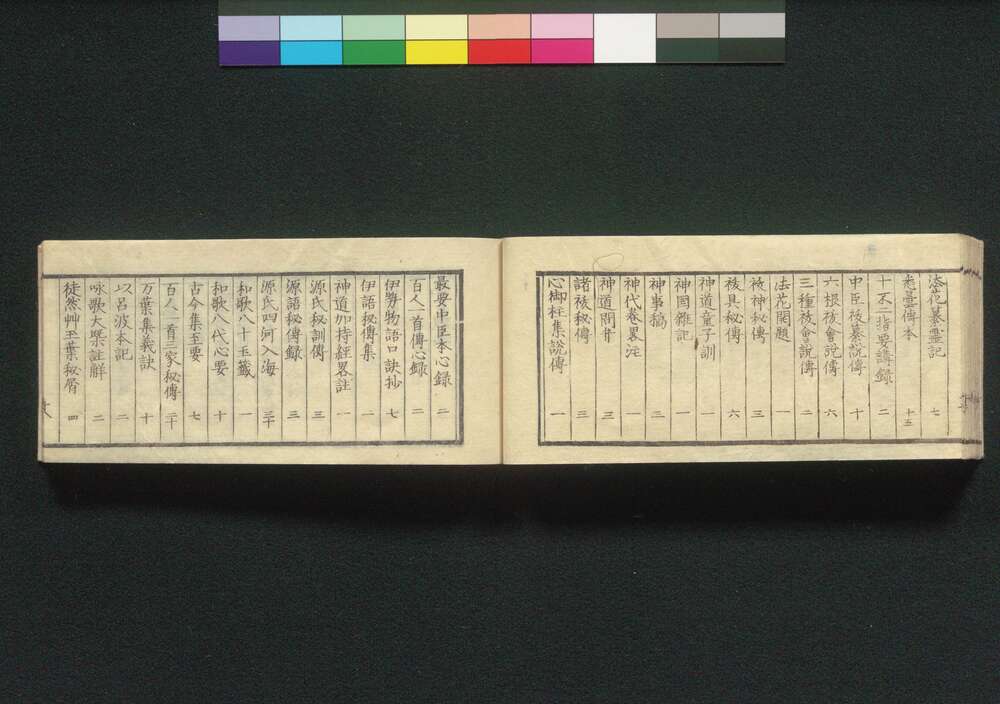 塔花墓靈記 七
臺傳本 十五
十不二指要講録 二
中臣祓纂説傳 十
六根祓會説傳 六
三種祓會説傳 二
法花開題 一
祓神秘傳 三
祓具秘傳 六
神道童子訓 一
神国雜記 一
神事稿 三
神代巻畧注 一
神道問答 三
諸祓秘傳 三
心御柱集説傳 一
最要中臣本心録 二
百人一首傳心録 二
伊勢物語口訣抄 七
伊語秘傳集 一
神道加持経畧註 一
源氏秘訓傳 三
源語秘傳録 三
源氏四河入海 三十
和歌八十玉籤 一
和歌八代心要 十
古今集至要 七
百人一首三家秘傳 二十
万葉集義訣 十
以呂波本記 二
咏歌大槩註觧 二
徒然艸玉葉秘屑 四